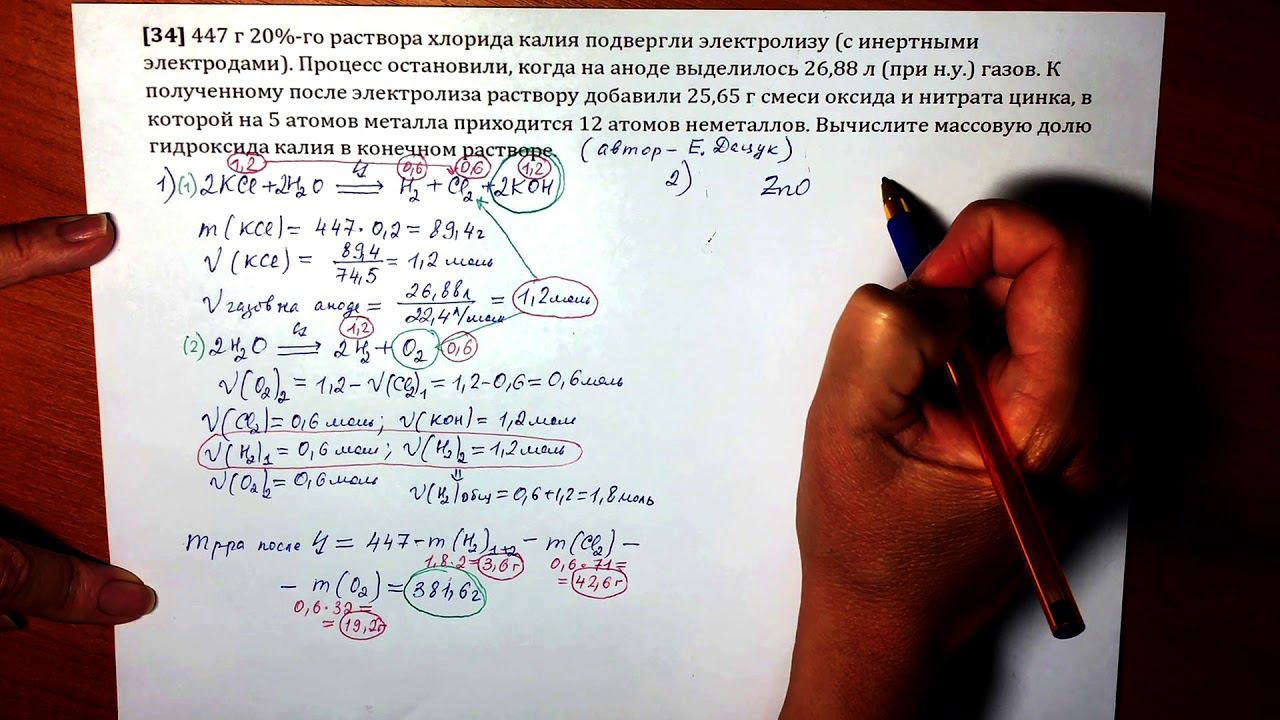 [34] 447 г 20%-го раствора хлорида калия подвергли электролизу (с инертными
электродами). Процесс остановили, когда на аноде выделилось 26,88 л (при н.у.) газов. К
полученному после электролиза раствору добавили 25,65 г смеси оксида и нитрата цинка, в
которой на 5 атомов металла приходится 12 атомов неметаллов. Вычислите массовую долю
гидроксида калия в конечном растворе.
(автор - Е. Дацук)
1,2 0,6 0,6 1,2
1) (1) 2KCl + 2H2O = H2 + Cl2 + 2KOH
2) ZnO
m(KCl) = 447 · 0,2 = 89,4г
ν(KCl) = 89,4/74,5 = 1,2 моль
ν газов на аноде = 26,88л/22,4л/моль = 1,2моль
1,2
(2) 2H2O = 2H2 + O2 0,6
ν(O2)2 = 1,2 - ν(Cl2)1 = 1,2 - 0,6 = 0,6моль
ν(Cl2) = 0,6 моль; ν(KOH) = 1,2 моль
ν(H2)1 = 0,6 моль; ν(H2)2 = 1,2моль
ν(O2)2 = 0,6 моль
ν(H2)общ = 0,6 + 1,2 = 1,8 моль
mр-ра после = 447 - m(H2)1+2 - m(Cl2) -
1,8·2=3,6г 0,6·71=
=42,6г
- m(O2) = 381,6г
0,6·32=
=19,2г